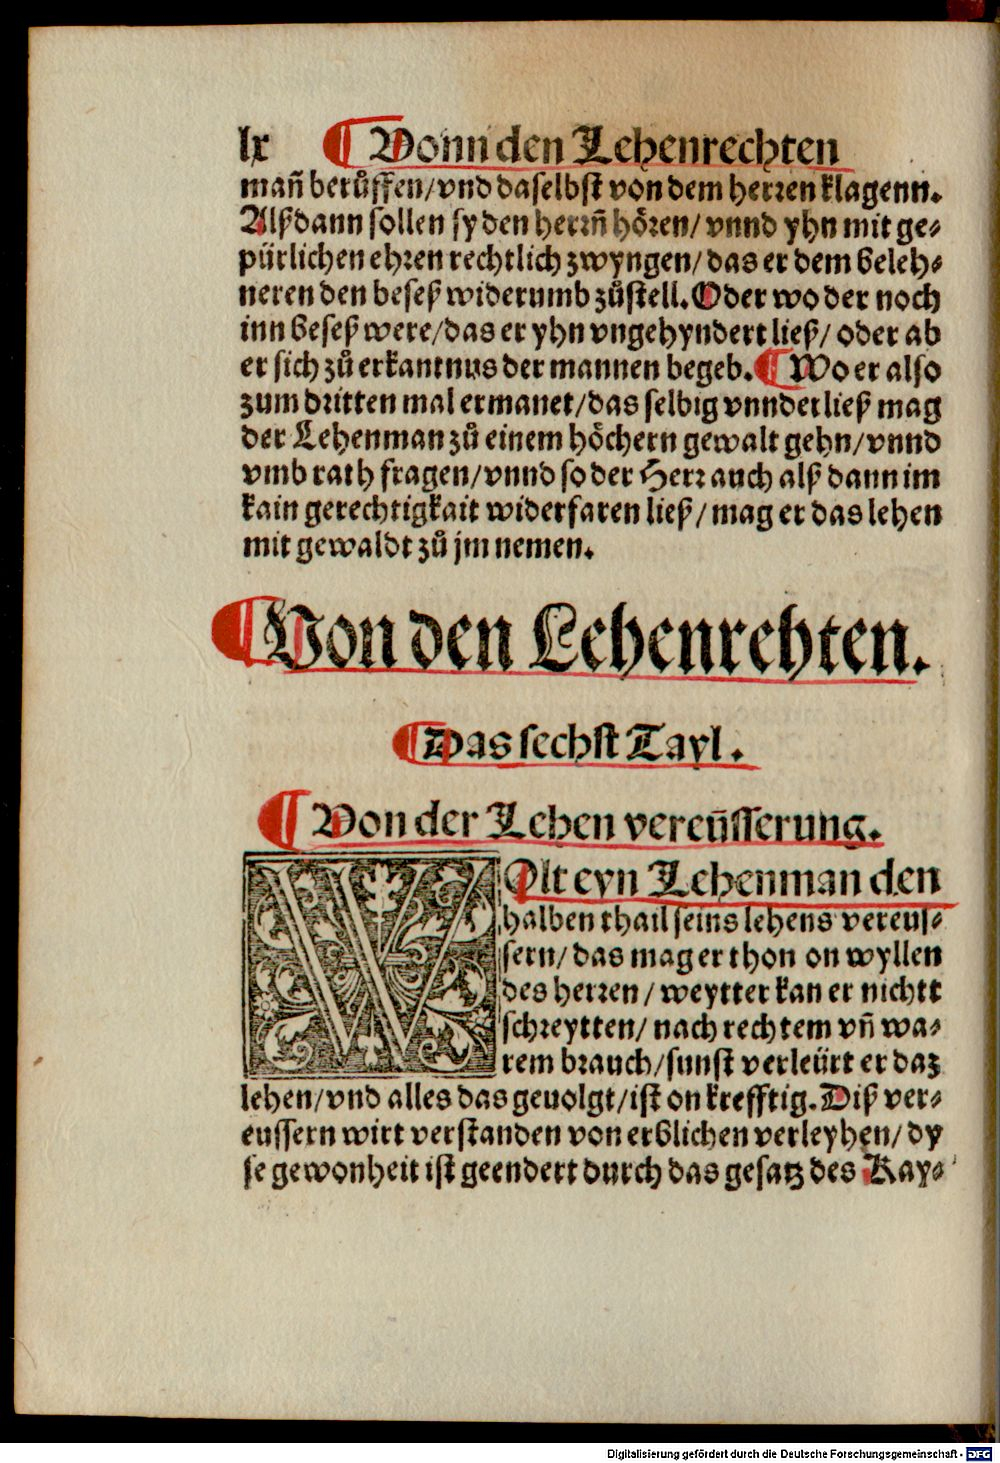 lx ¶ Vonn den Lehenrechten
man̄ berůffen/vnd daselbst von dem herren klagenn.
Alßdann sollen sy den herrn̄ hören/ vnnd yhn mit ge⸗
pürlichen ehren rechtlich zwyngen/das er dem beleh⸗
neren den beseß widerumb zůstell. Oder wo der noch
inn beseß were/das er yhn vngehyndert ließ/ oder ab
er sich zů erkantnus der mannen begeb. ¶ Wo er also
zum dritten mal ermanet/das selbig vnnderließ mag
der Lehenman zů einem höchern gewalt gehn/vnnd
vmb rath fragen/vnnd so der Herr auch alß dann im
kain gerechtigkait widerfaren ließ/mag er das lehen
mit gewaldt zů jm nemen.
¶ Von den Lehenrehten.
¶ Das sechst Tayl.
¶ Von der Lehen vereüsserung.
WOlt eyn Lehenman den
halben thail seins lehens vereus⸗
sern/das mag er thon on wyllen
des herren/weytter kan er nichtt
schreytten/nach rechtem vn̄ wa⸗
rem brauch/sunst verleürt er daz
lehen/vnd alles das geuolgt/ist on krefftig. Diß ver⸗
eussern wirt verstanden von erblichen verleyhen/ dy
se gewonheit ist geendert durch das gesatz des Kay⸗
Digitalisierung gefördert durch die Deutsche Forschungsgemeinschaft - DFG